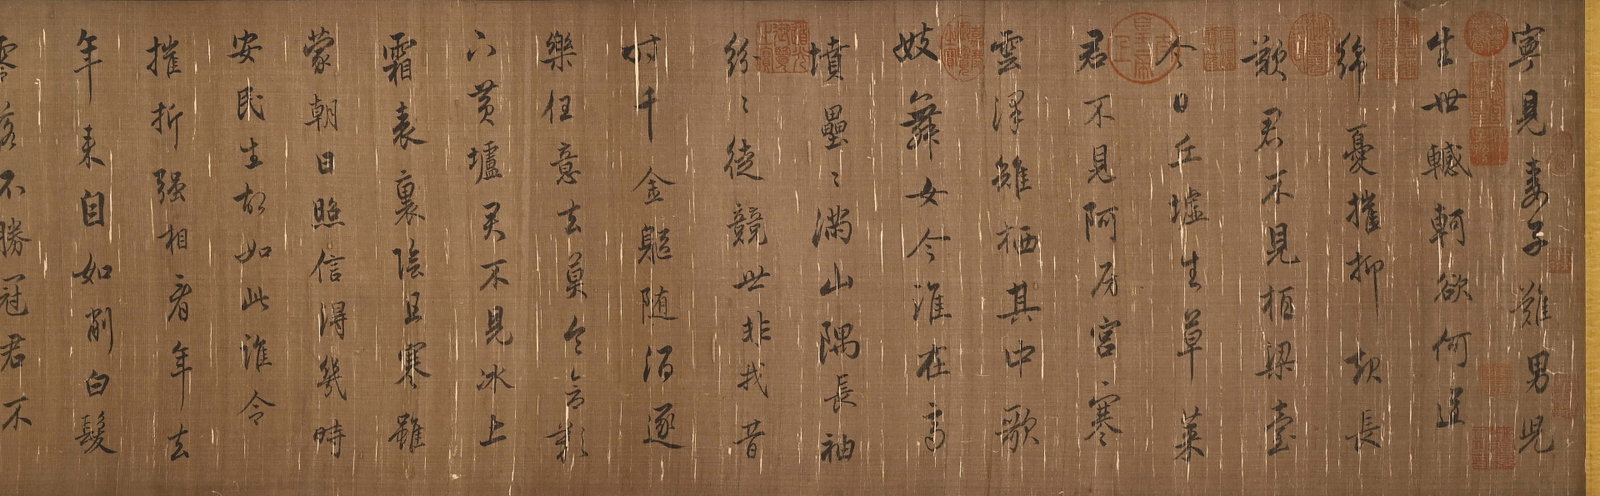 寧見妻子難男兒
生世轗軻欲何道
綿憂摧抑起長
歎君不見柏梁臺
今日丘墟生草萊
君不見阿房宮寒
雲澤雉栖其中歌
妓舞女今誰在高
墳壘〻滿山隅長袖
紛〻徒競世非我昔
時千金軀隨酒逐
樂任意去莫令含歎
下黃壚君不見冰上
霜表裏陰且寒雖
蒙朝日照信得幾時
安民生故如此誰令
摧折强相看年去
年來自如削白髮
零落不勝冠君不